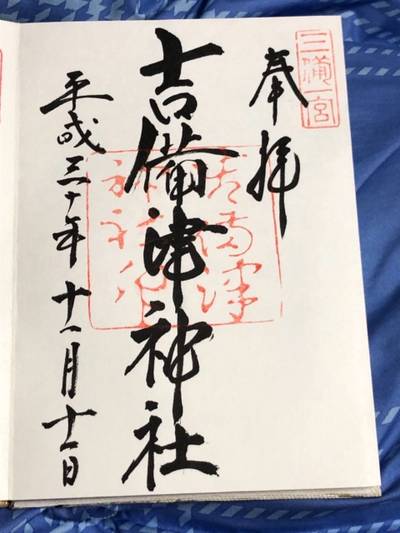 三備一宮
奉拝
吉備津神社
平成三十年十一月十一日